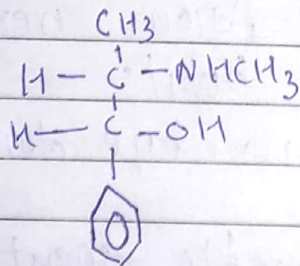 CH3
H - C - NHCH3
H - C - OH